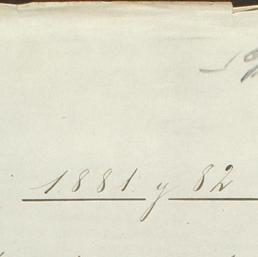 1881 y 82